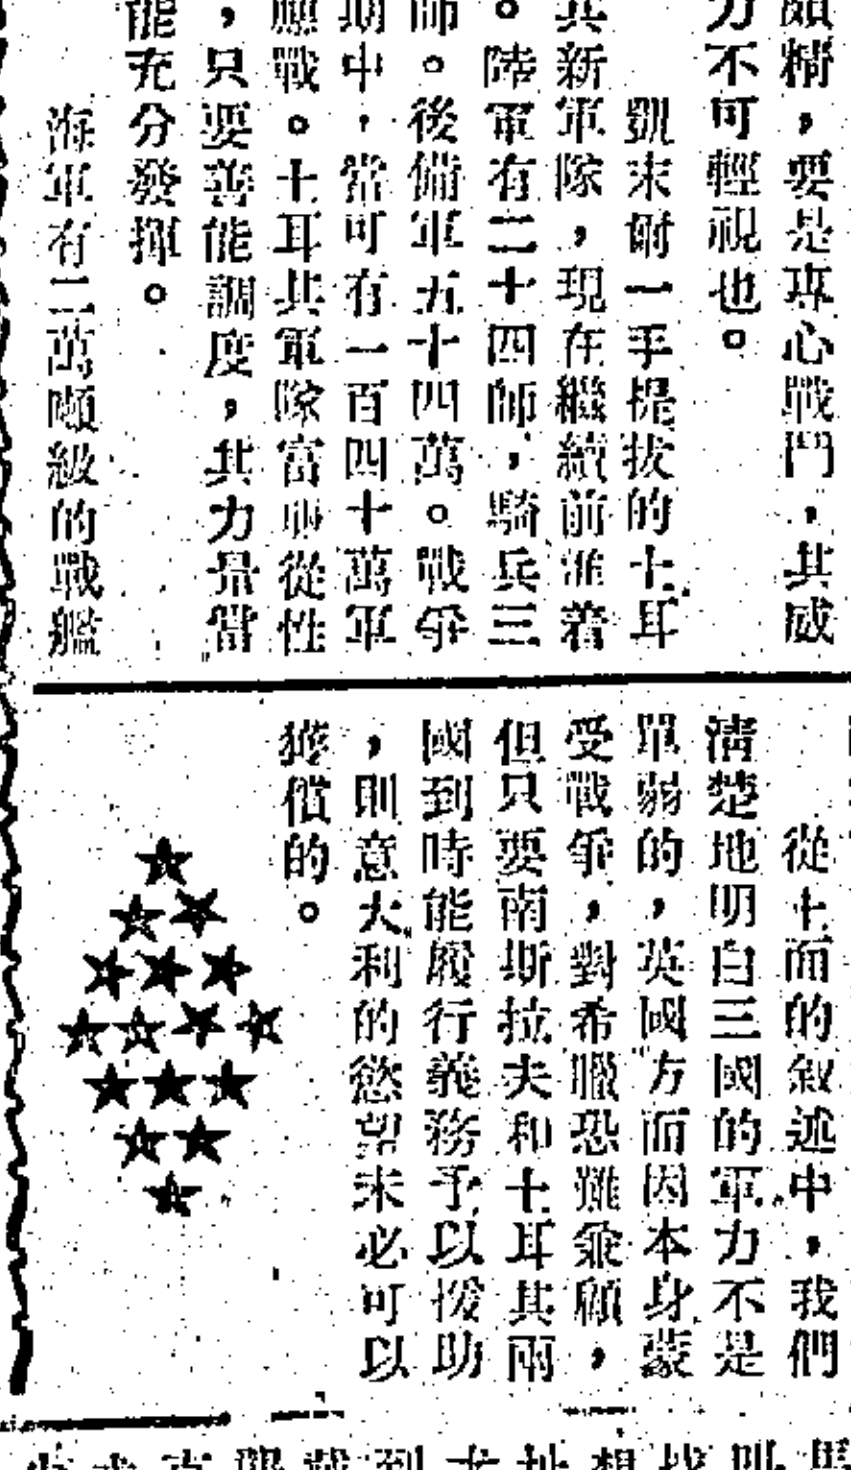 頗精，要是專心戰鬥，其威
力不可輕視也。
凱末爾一手提拔的土耳
其新軍隊，現在繼續前進着
。陸軍有二十四師，騎兵三
師。後備軍五十四萬。戰爭
期中，當可有一百四十萬軍
應戰。土耳其軍隊富服從性
，只要善能調度，其力量當
能充分發揮。
海軍有二萬噸級的戰艦
從上面的叙述中，我們
清楚地明白三國的軍力不是
單弱的，英國方面因本身蒙
受戰爭，對希臘恐難兼顧，
但只要南斯拉夫和土耳其兩
國到時能履行義務予以援助
，則意大利的慾望未必可以
獲償的。